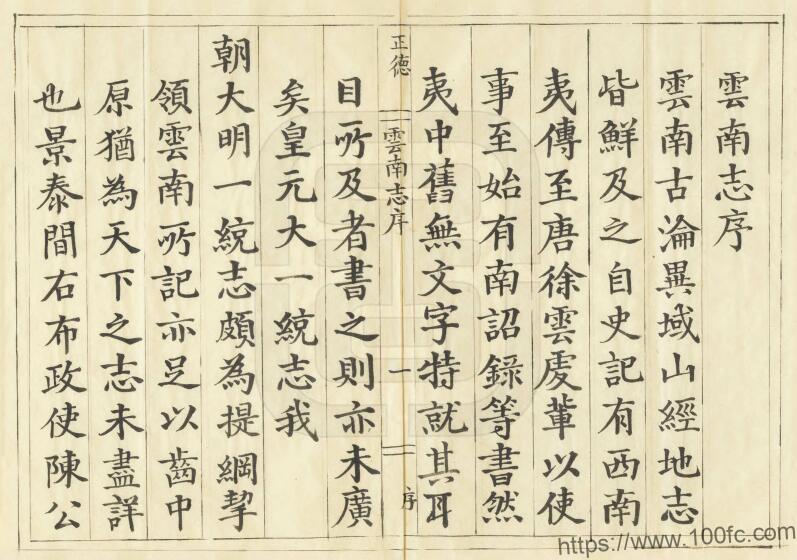 雲南志序
雲南古淪異域山經地志
皆鮮及之自史記有西南
夷傳至唐徐雲虔軰以使
事至始有南詔錄等書然
夷中舊無文字特就其耳
正德
雲南志序
一
序
目所及者書之則亦未廣
矣皇元大一統志我
朝大明一統志頗為提綱挈
領雲南所記亦足以齒中
原猶為天下之志未盡詳
也景泰間右布政使陳公
https://www.100fc.com